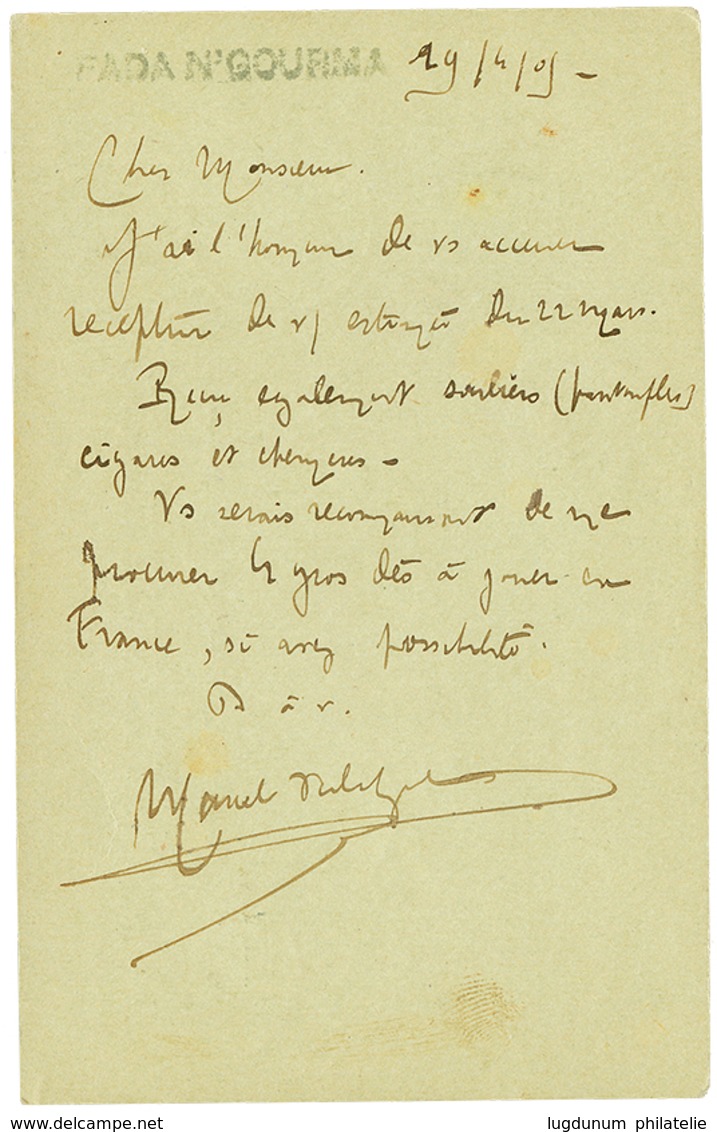 FADA N'GOURMA 19/4/05 -
Cher Monsieur.
J'ai l'honneur de vs accuser
reception de v/ estimée du 22 mars.
Reçu également souliers (pantoufles)
cigares et chemises -
Vs serais reconnaissant de me
procurer 4 gros dés à jouer en
France, si avez possibilité.
B à v.
Marcel
www.delcampe.net
lugdunum philatelie